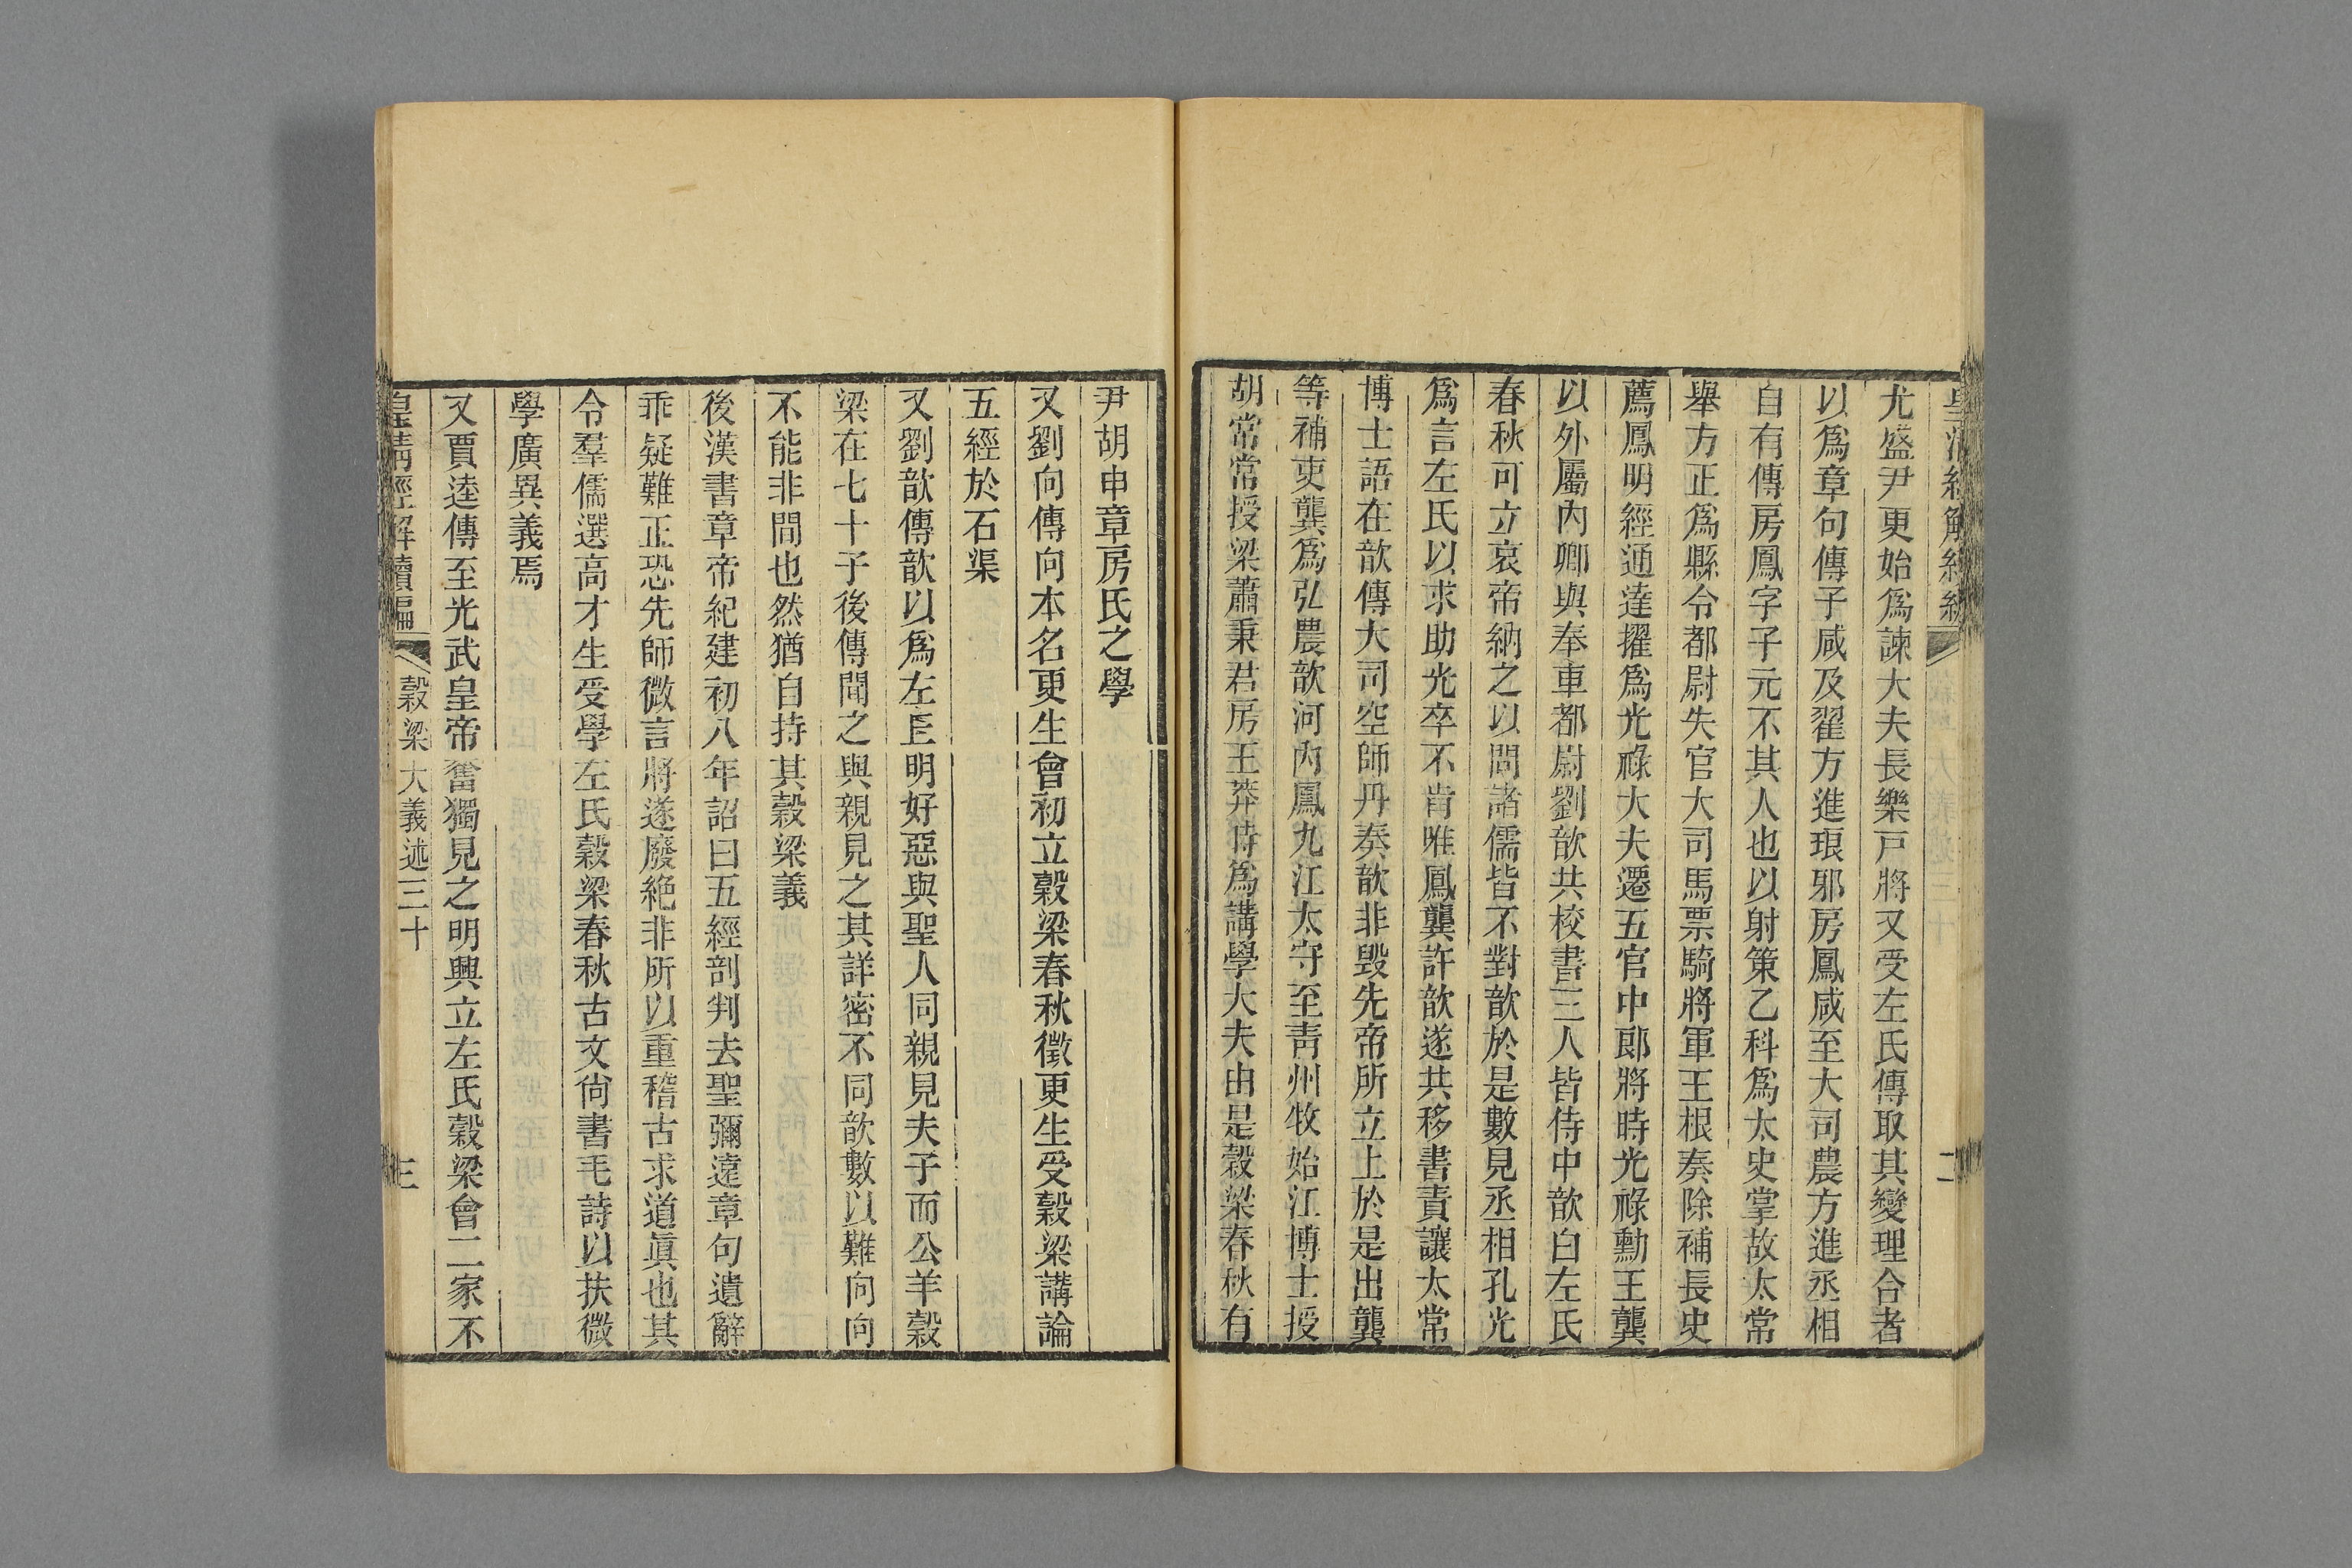 尤盛尹更始爲諫大夫長樂戸將又受左氏傳取其變理合者
以爲章句傳子咸及翟方進琅邪房鳳咸至大司農方進丞相
自有傳房鳳字子元不其人也以射策乙科爲太史掌故太常
舉方正爲縣令都尉失官大司馬票騎將軍王根奏除補長史
薦鳳明經通達擢爲光祿大夫遷五官中郎將時光祿勳王龔
以外屬內卿與奉車都尉劉歆共校書三人皆侍中歆白左氏
春秋可立哀帝納之以問諸儒皆不對歆於是數見丞相孔光
爲言左氏以求助光卒不肯唯鳳龔許歆遂共移書責讓太常
博士語在歆傳大司空師丹奏歆非毀先帝所立上於是出龔
等補吏龔爲弘農歆河內鳳九江太守至靑州牧始江博士授
胡常常授梁蕭秉君房王莽時爲講學大夫由是穀梁春秋有
二
尹胡申章房氏之學
又劉向傳向本名更生會初立穀梁春秋徵更生受穀梁講論
五經於石渠
又劉歆傳歆以爲左𠀉明好惡與聖人同親見夫子而公羊穀
梁在七十子後傳聞之與親見之其詳密不同歆數以難向向
不能非間也然猶自持其穀梁義
後漢書章帝紀建初八年詔曰五經剖判去聖彌遠章句遺辭
乖疑難正恐先師微言將遂廢絶非所以重稽古求道眞也其
令羣儒選高才生受學左氏穀梁春秋古文尙書毛詩以扶微
學廣異義焉
又賈逵傳至光武皇帝奮獨見之明興立左氏穀梁會二家不
皇淸經解續編 穀梁大義述三十 三